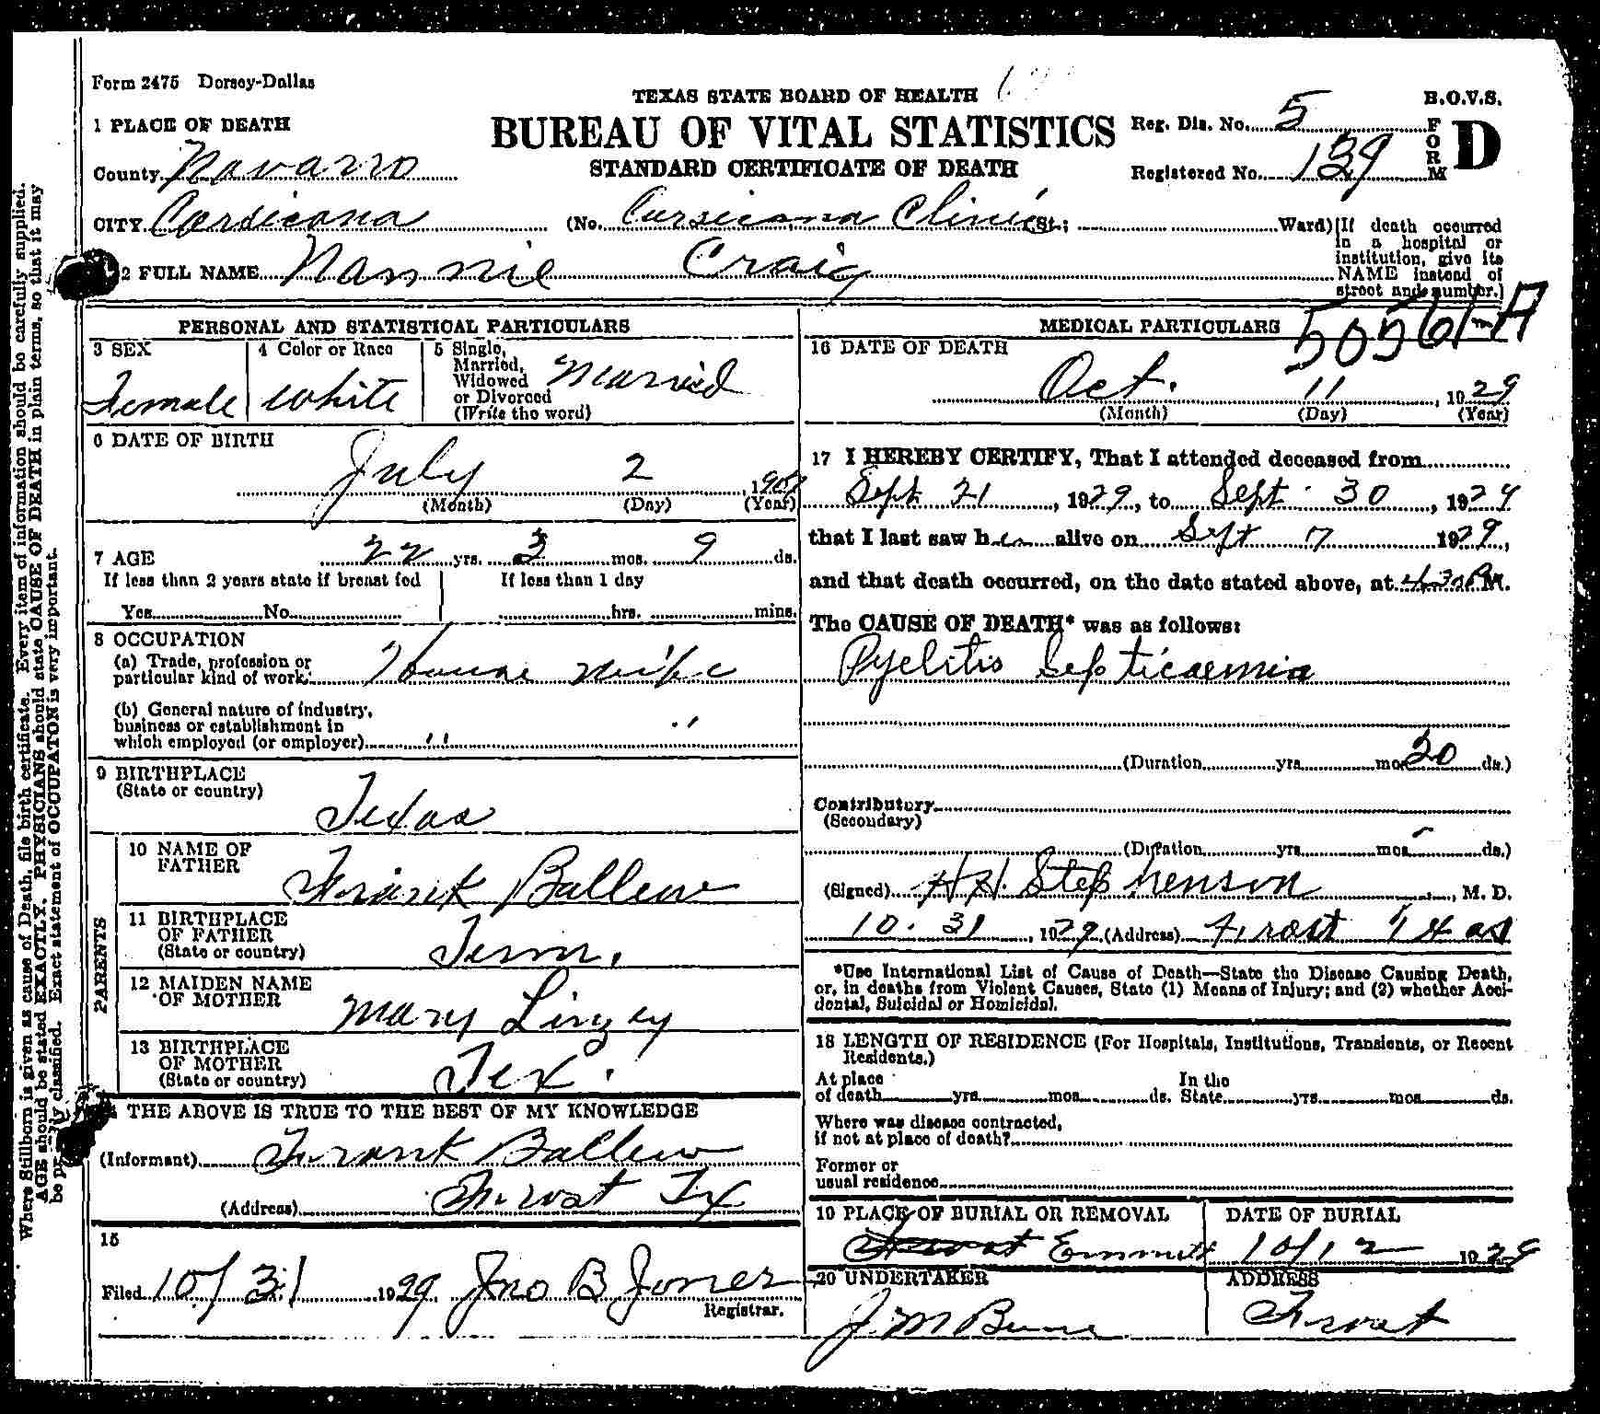 Form 2475 Dorsey-Dallas
TEXAS STATE BOARD OF HEALTH
B.O.V.S.
BUREAU OF VITAL STATISTICS
STANDARD CERTIFICATE OF DEATH
Reg. Dis. No. 5
Registered No. 139
FORM D
1 PLACE OF DEATH
County Navarro
CITY Corsicana (No. Corsicana Clinic St.; Ward)
[If death occurred in a hospital or institution, give its NAME instead of street and number.]
2 FULL NAME Nannie Craig
50561-A
PERSONAL AND STATISTICAL PARTICULARS
3 SEX Female
4 Color or Race White
5 Single, Married, Widowed or Divorced (Write the word) Married
6 DATE OF BIRTH
July 2 1907
(Month) (Day) (Year)
7 AGE 22 yrs. 3 mos. 9 ds.
If less than 2 years state if breast fed
Yes No
If less than 1 day
hrs. mins.
8 OCCUPATION
(a) Trade, profession or particular kind of work House wife
(b) General nature of industry, business or establishment in which employed (or employer) " "
9 BIRTHPLACE
(State or country)
Texas
PARENTS
10 NAME OF FATHER Frank Ballew
11 BIRTHPLACE OF FATHER (State or country) Tenn.
12 MAIDEN NAME OF MOTHER Mary Linzey
13 BIRTHPLACE OF MOTHER (State or country) Tex.
THE ABOVE IS TRUE TO THE BEST OF MY KNOWLEDGE
(Informant) Frank Ballew
(Address) Frost Tx
15
Filed 10/31 1929 Jno B Jones
Registrar.
MEDICAL PARTICULARS
16 DATE OF DEATH
Oct. 11, 1929
(Month) (Day) (Year)
17 I HEREBY CERTIFY, That I attended deceased from
Sept 21, 1929, to Sept. 30, 1929
that I last saw her alive on Sept 7 1929,
and that death occurred, on the date stated above, at 4:30 P.M.
The CAUSE OF DEATH* was as follows:
Pyelitis Septicaemia
(Duration yrs. mos. 20 ds.)
Contributory
(Secondary)
(Duration yrs. mos. ds.)
(Signed) H.H. Stephenson, M. D.
10.31, 1929 (Address) Frost Texas
*Use International List of Cause of Death—State the Disease Causing Death,
or, in deaths from Violent Causes, State (1) Means of Injury; and (2) whether Acci-
dental, Suicidal or Homicidal.
18 LENGTH OF RESIDENCE (For Hospitals, Institutions, Transients, or Recent
Residents.)
At place of death yrs. mos. ds. In the State yrs. mos. ds.
Where was disease contracted,
if not at place of death?
Former or
usual residence
19 PLACE OF BURIAL OR REMOVAL
Frost Emmett
DATE OF BURIAL
10/12 1929
20 UNDERTAKER
J. M.
ADDRESS
Frost
Where Stillborn is given as cause of Death, file birth certificate. Every item of information should be carefully supplied.
AGE should be stated EXACTLY. PHYSICIANS should state CAUSE OF DEATH in plain terms, so that it may
be properly classified. Exact statement of OCCUPATON is very important.